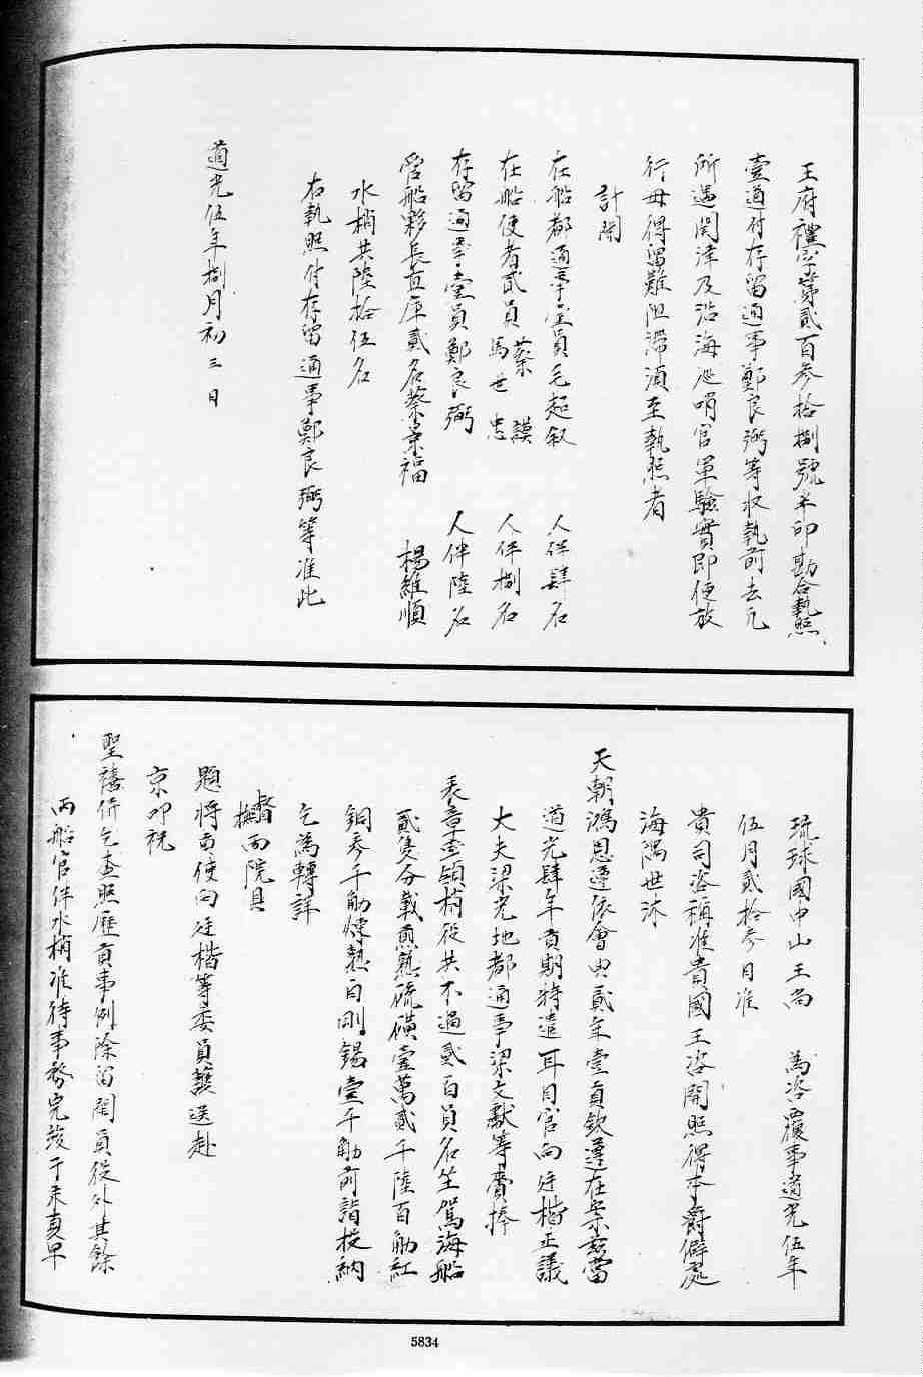 王府禮字第貳百參拾捌號半印勘合執照
壹道付存留通事鄭良弼等收執前去凡
所遇関津及沿海巡哨官軍驗實即便放
行毋得留難阻滯須至執照者
計開
在船都通事壹員毛超叙 人伴肆名
在船使者貳員 蔡謨 馬世忠 人伴捌名
存留通事壹員鄭良弼 人伴陸名
管船夥長直庫貳名蔡景福 楊維順
水梢共陸拾伍名
右執照付存留通事鄭良弼等准此
道光伍年捌月初三日
琉球國中山王尚 為咨覆事道光伍年
伍月貳拾參日准
貴司咨稱准貴國王咨開照得本爵僻處
海隅世沐
天朝鴻恩遵依會典貳年壹貢欽遵在案玆當
道光肆年貢期特遣耳目官向廷楷正議
大夫梁光地都通事梁文獻等賫捧
表章壹號梢役共不過貳百員名坐駕海船
貳隻分載煎熟硫磺壹萬貳千陸百觔紅
銅參千觔煉熟白剛錫壹千觔前詣投納
乞為轉詳
督撫兩院具
題將貢使向廷楷等委員護送赴
京叩祝
聖禧併乞查照歷貢事例除留閩員役外其餘
兩船官伴水梢准待事務完竣于來夏早
5834